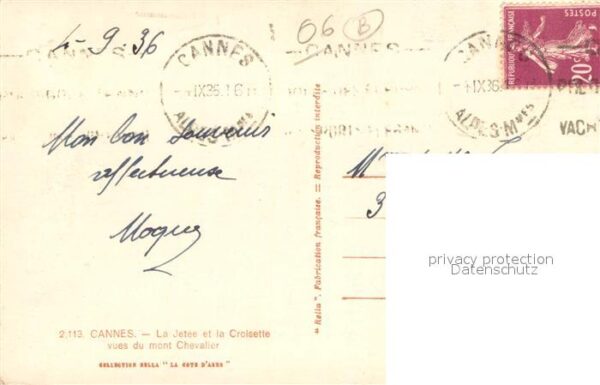 4-9 36
06 B
CANNES
-4 IX 36
ALPES-Mmes
CANNES
CANNES
IX 36
ALPES-Mmes
REPUBLIQUE FRANÇAISE
POSTES
20c
VACH
Mon bon souvenir
affectueuse
M
3
"Rella". Fabrication française. = Reproduction interdite
privacy protection
Datenschutz
2.113. CANNES. — La Jetee et la Croisette
vues du mont Chevalier
COLLECTION RELLA "LA COTE D'AZUR"